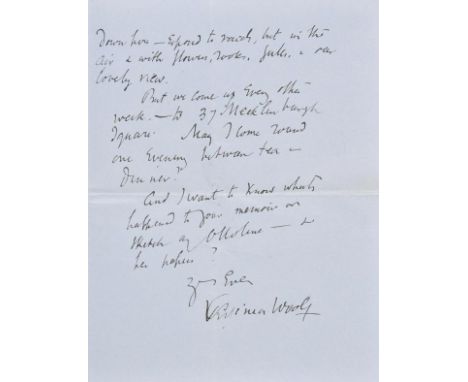 Down here – exposed to raids, but in the
air & with flowers, rooks, gulls, & our
lovely view.
But we come up every other
week. – to 37 Mecklenburgh
Square. May I come round
one evening between tea &
dinner?
And I want to know what's
happened to your memoir or
sketch of Ottoline – &
her papers?
Yrs Ever
Virginia Woolf